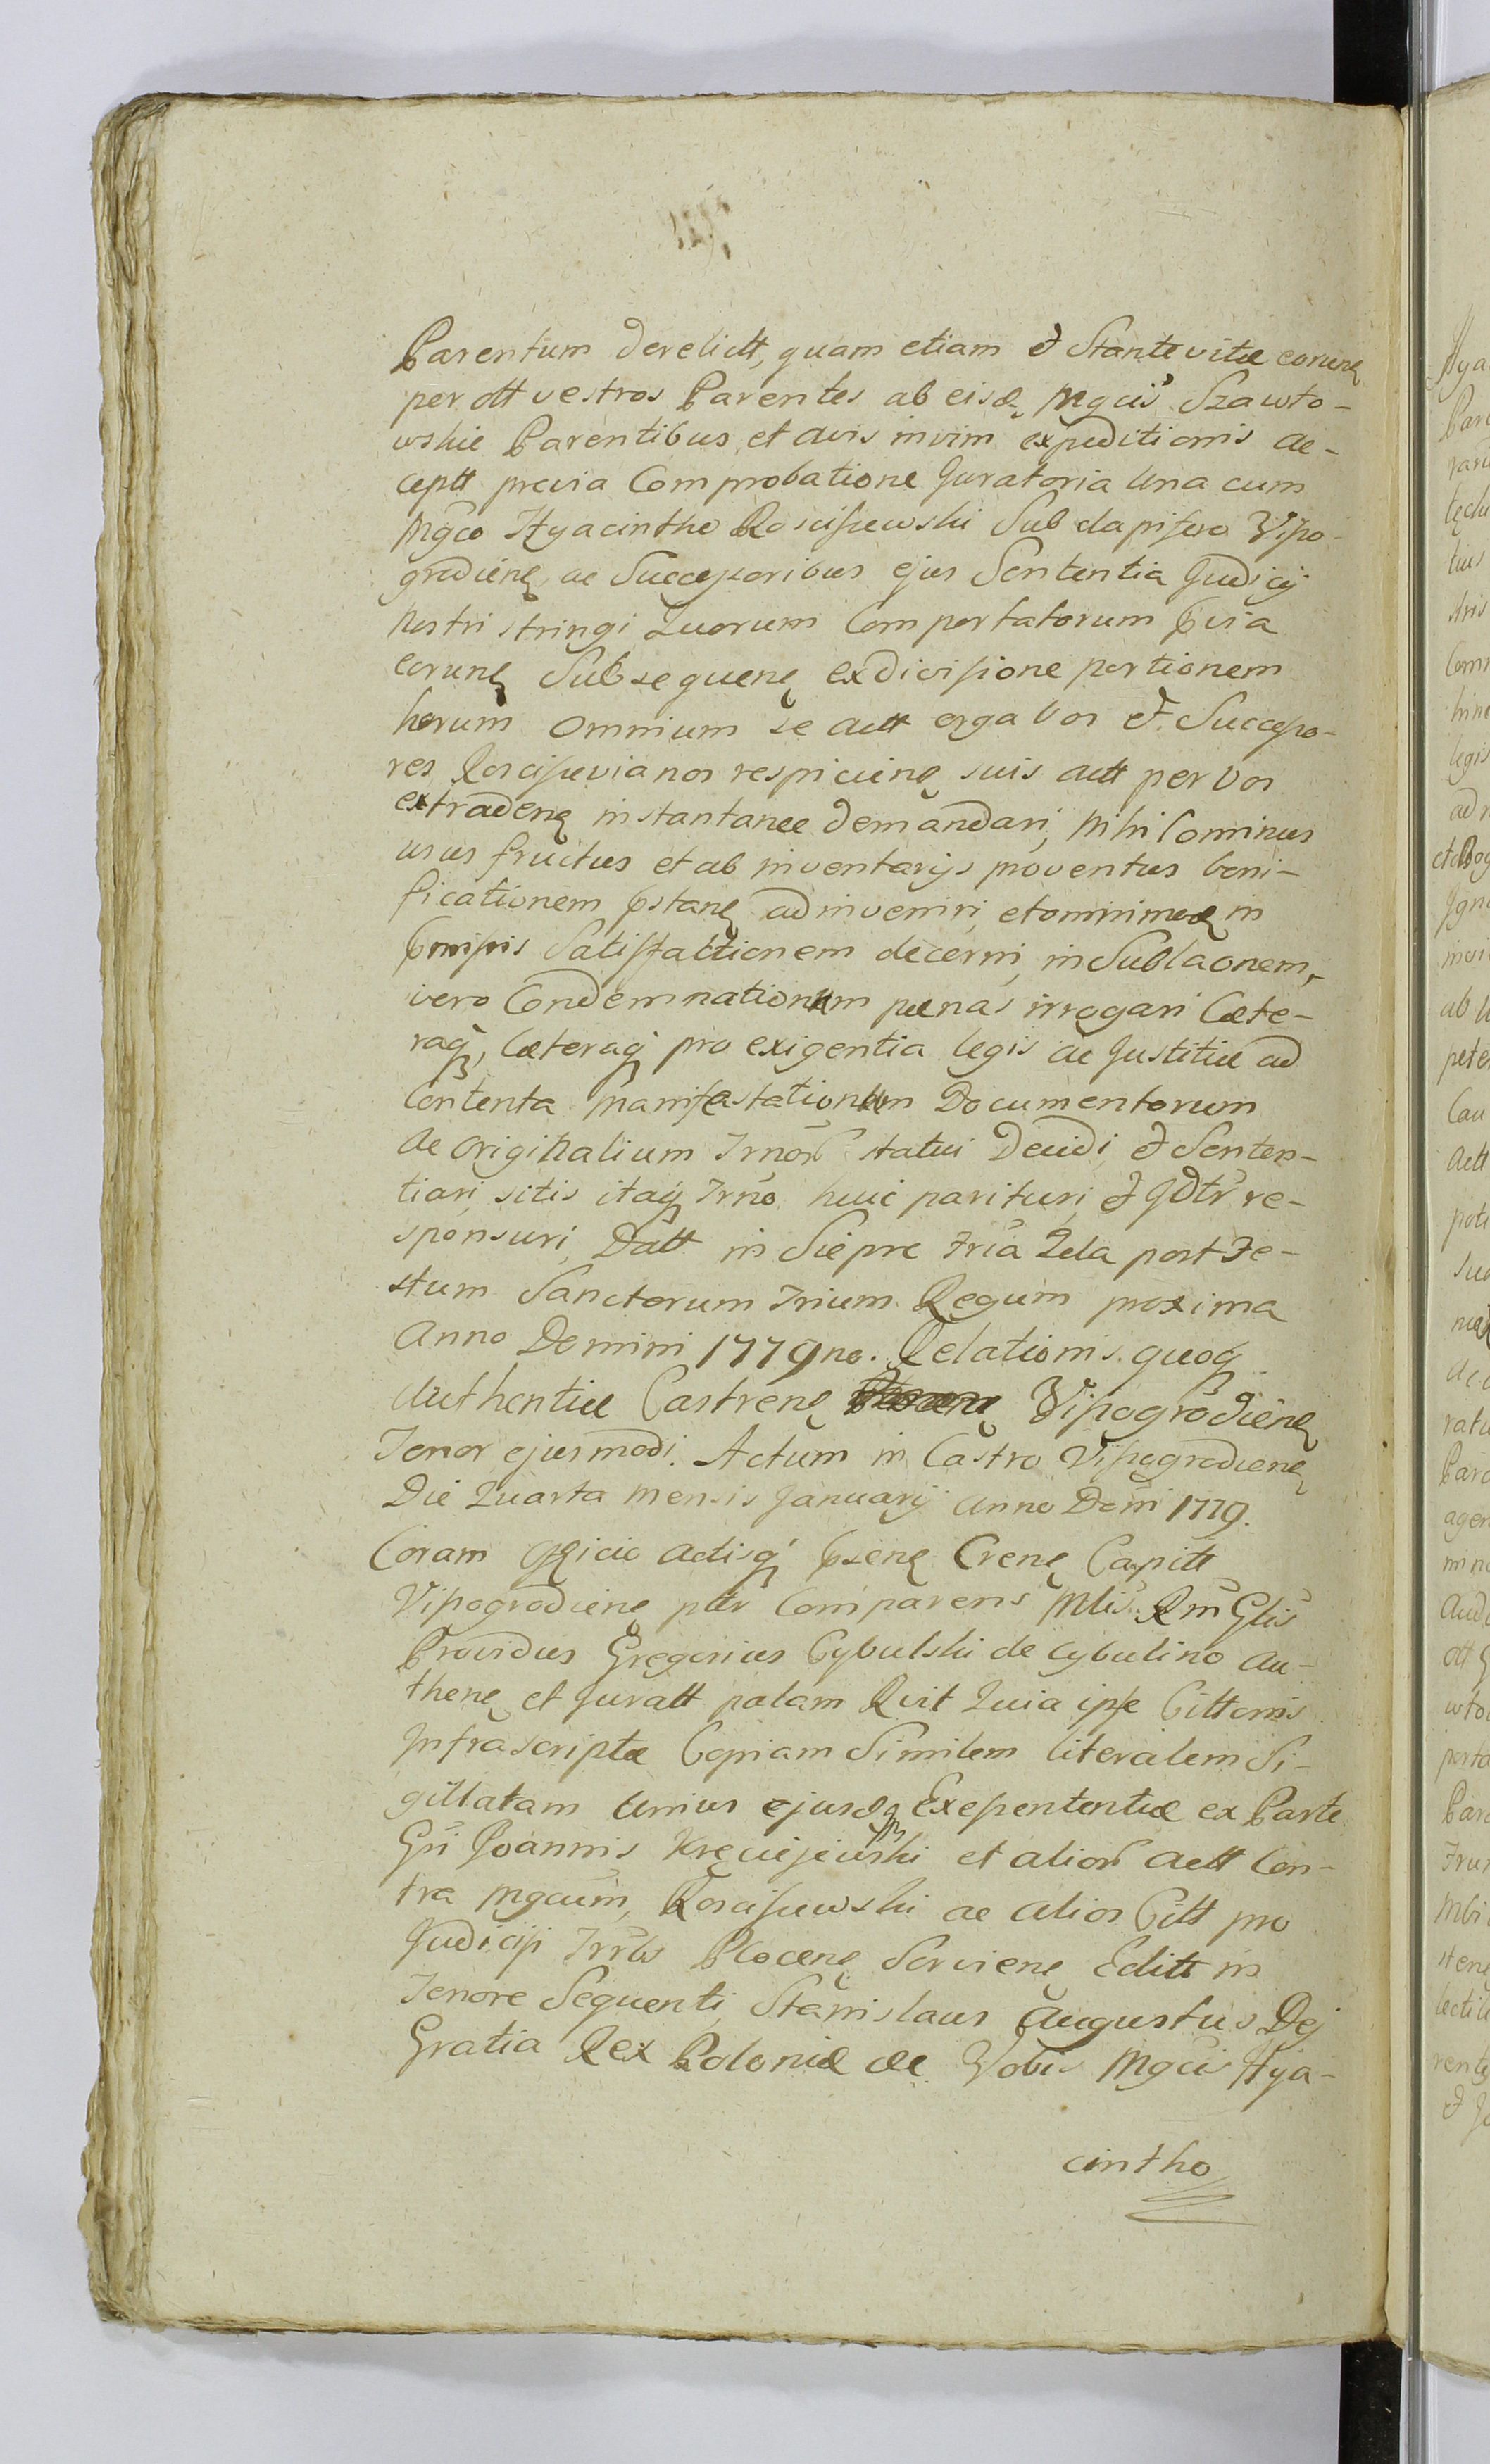 Parentum derelict, quam etiam et Stante vitæ eorunę
per ott vestros Parentes ab eisdę Mgcis Szawło-
wskie Parentibus et avis in vim expeditionis ac-
ceptt previa Comprobatione Juratoria Una cum
Mgco Hyacintho Roscisźewski Sub dapifero Vißo-
grodienę ac Succeßoribus ejus Sententia Judicij
Nostri stringi Quorum Comportatorum
eorunę Subsequenę ex divisione portionem
horum omnium se actt erga Vos et Succeßo-
res Roscißevianos respicienę suis actt per Vos
extradenę instantanee demandari, Nihilominus
usus fructus et ab inventarijs proventus boni-
ficationem pstanę adinveniri, et omnimodę in
Pmißis Satisfactionem decerni, in Sublaonem,
vero Condemnationum pænas irrogari Cæte-
raq, Cæteraq pro exigentia legis ac Justitiæ ad
Contenta Manifestationum Documentorum
ac originalium Trnor statui Decidi et Senten-
tiari, sitis itaq Trno huic parituri et Jdtr re-
sponsuri, Datt in Sieprc Fria 2da post Fe-
stum Sanctorum Trium Regum proxima
Anno Domini 1779no. Relationis quoq
Authenticæ Castrenę Vißogrodienę
Tenor ejusmodi. Actum in Castro Vißogrodienę
Die Quarta Mensis Januarij Anno Domi 1779.
Coram officio Actisq psenę Crenę Capitt
Vißogrodienę pltr Comparens Mlis Rni Glis
Providus Gregorius Cybulski de Cybulino au-
thenę et Juratt palam Rcit Quia ipse Cittonis
Infrascriptæ Copiam Similem literalem Si-
gillatam Unius ejusdę Exepententiæ ex Parte
Gsi Joannis Kręciejewski et alior actt Con-
tra Mgcum, Roscißewski ac alios Citt pro
Judicijs Trrbs Plocenę Servienę Editt in
Tenore Sequenti, Stanislaus Augustus Dej
Gratia Rex Poloniæ &c Vobis Mgcis Hya-
cintho